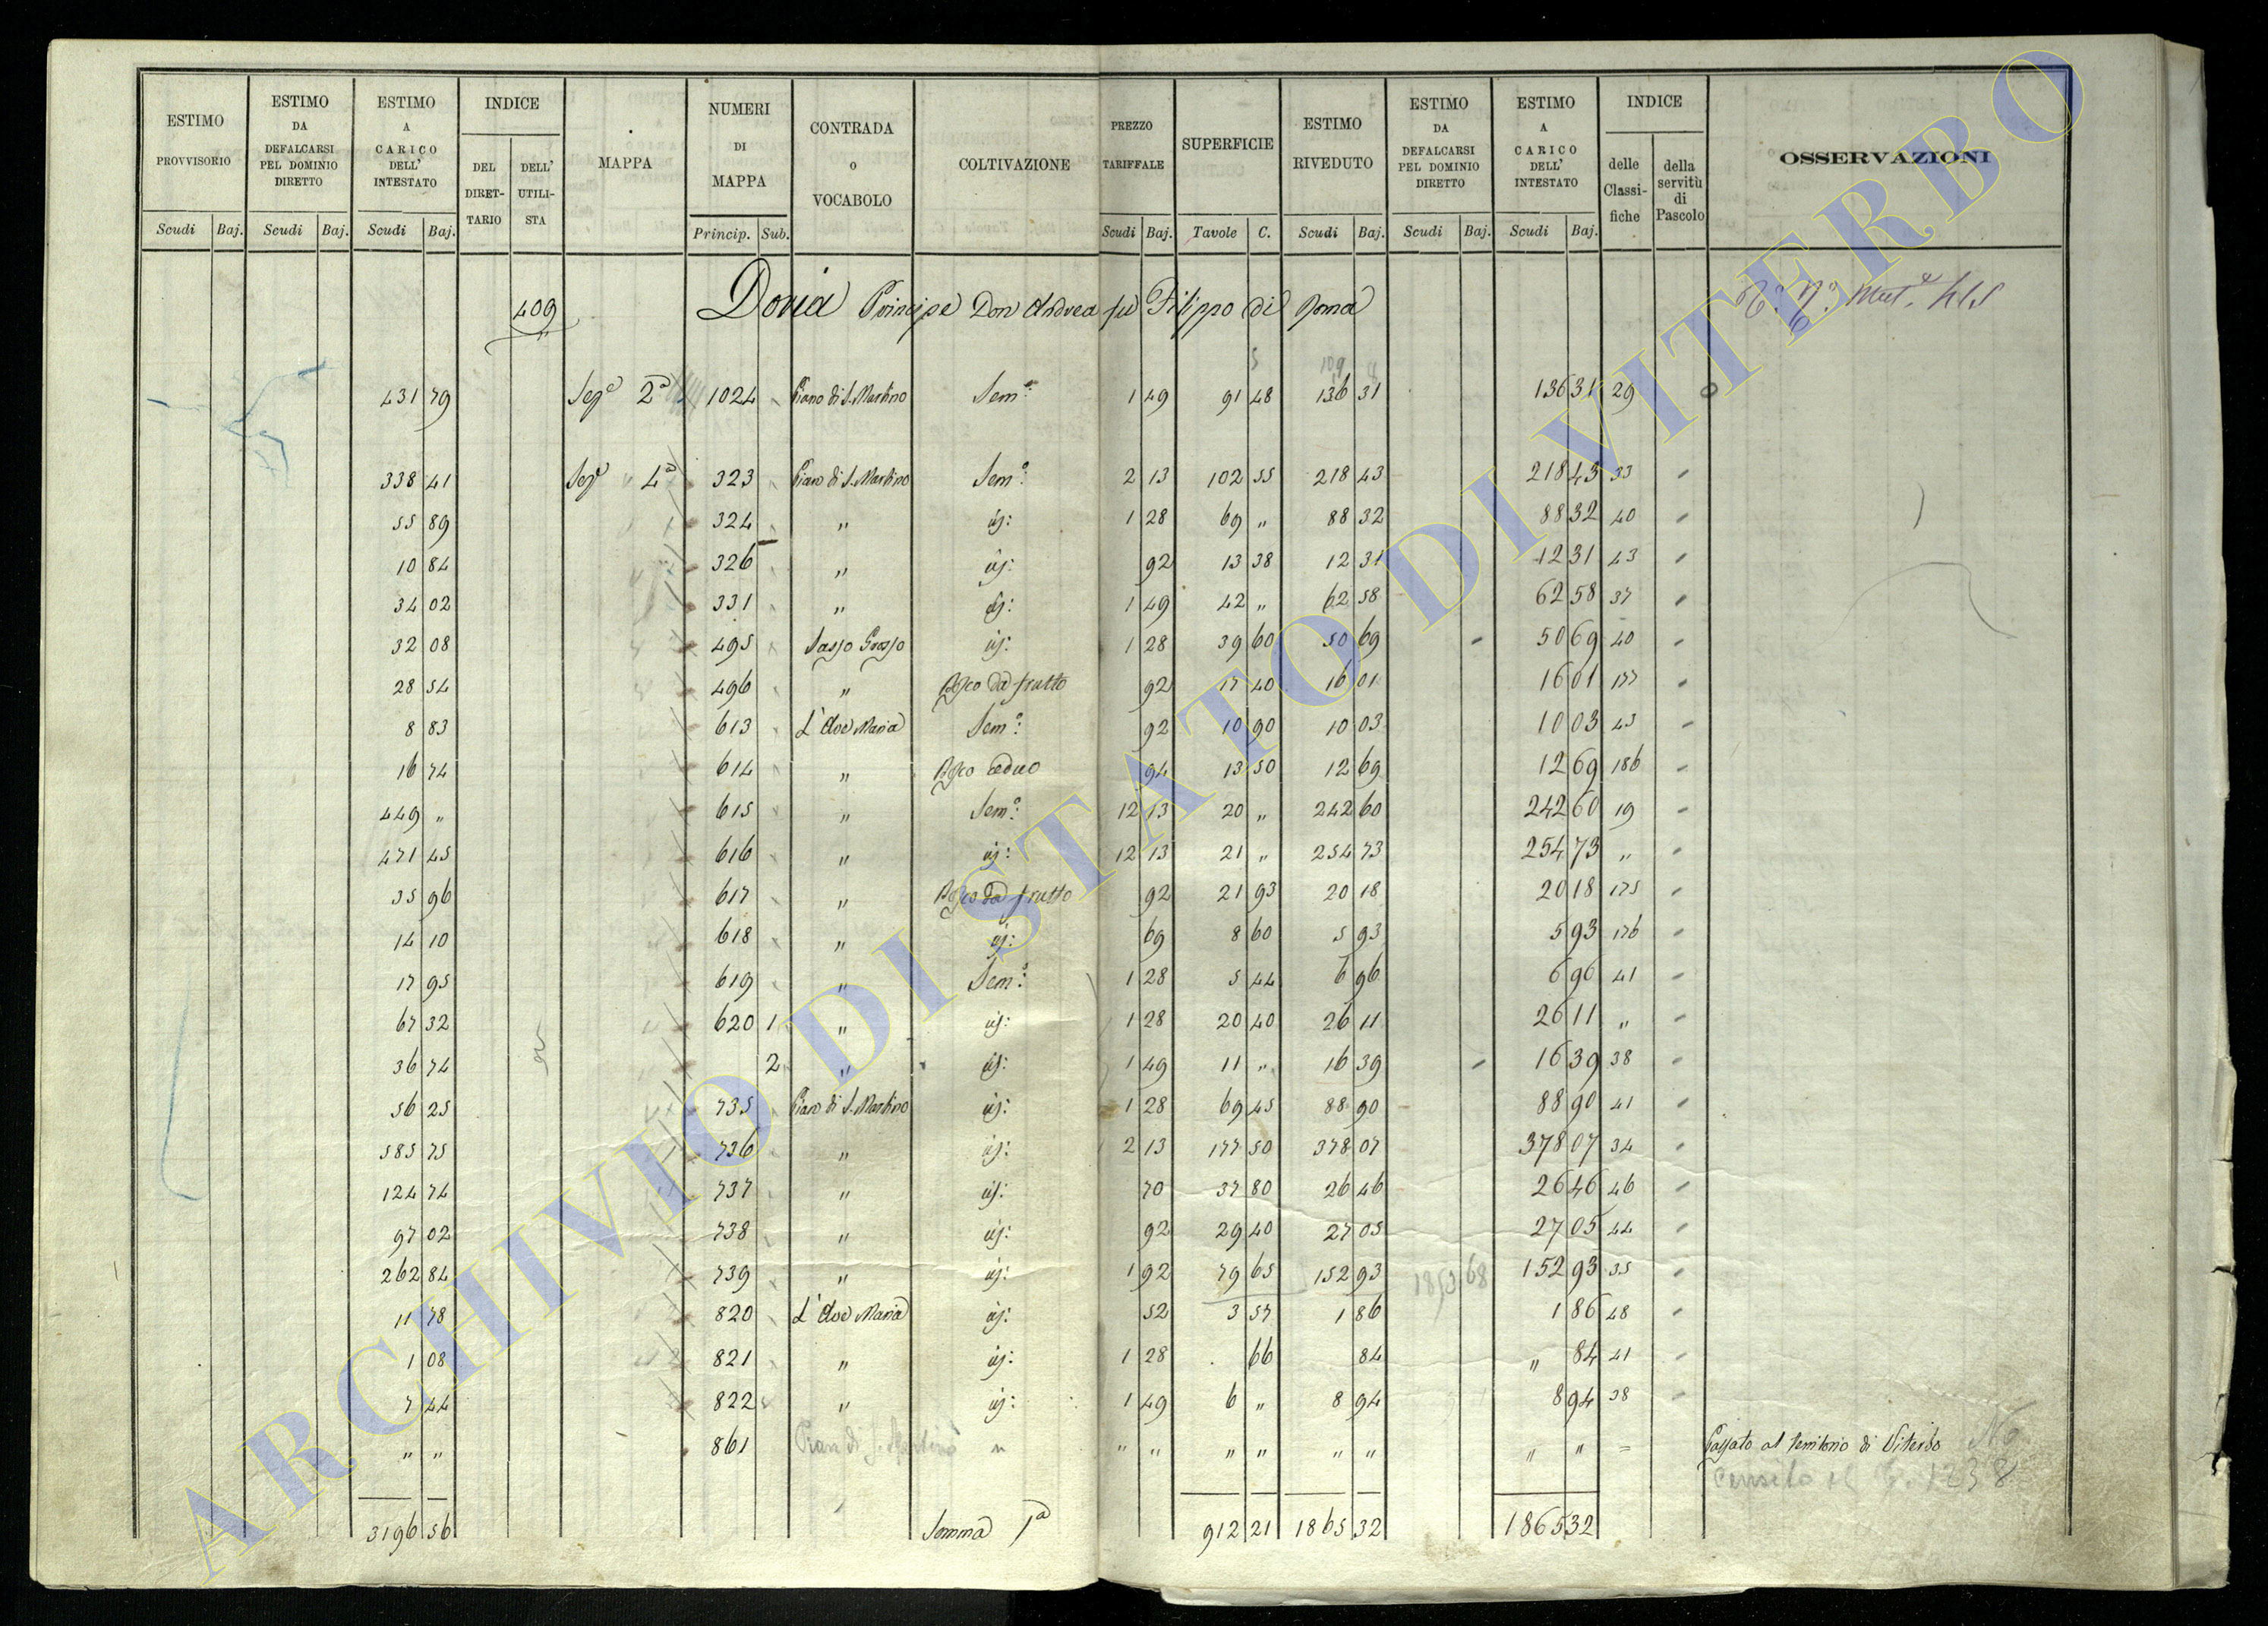 ESTIMO PROVVISORIO | ESTIMO DA DEFALCARSI PEL DOMINIO DIRETTO | ESTIMO A CARICO DELL' INTESTATO | INDICE DEL DIRETTARIO | INDICE DELL' UTILISTA | MAPPA | NUMERI DI MAPPA | CONTRADA o VOCABOLO | COLTIVAZIONE | PREZZO TARIFFALE | SUPERFICIE | ESTIMO RIVEDUTO | ESTIMO DA DEFALCARSI PEL DOMINIO DIRETTO | ESTIMO A CARICO DELL' INTESTATO | INDICE delle Classifiche | della servitù di Pascolo | OSSERVAZIONI
Scudi Baj. Scudi Baj. Scudi Baj. Princip. Sub. Scudi Baj. Tavole C. Scudi Baj. Scudi Baj. Scudi Baj.
409 Doria Principe Don Andrea fu Filippo di Roma
109
431 79 Sez.e 2a 1024 Piano di S. Martino Sem.o 1 49 91 48 136 31 136 31 29
338 41 Sez.e 4a 323 Piano di S. Martino Sem.o 2 13 102 55 218 43 218 43 33
55 89 324 " id: 1 28 69 " 88 32 88 32 40
10 84 326 " id: 92 13 38 12 31 12 31 43
34 02 331 " id: 1 49 42 " 62 58 62 58 37
32 08 495 Sasso Grosso id: 1 28 39 60 50 69 50 69 40
28 54 496 " Bosco da frutto 92 17 40 16 01 16 01 177
8 83 613 L'Ave Maria Sem.o 92 10 90 10 03 10 03 43
16 74 614 " Bosco ceduo 94 13 50 12 69 12 69 186
449 " 615 " Sem.o 12 13 20 " 242 60 242 60 19
471 45 616 " id: 12 13 21 " 254 73 254 73 "
35 96 617 " Bosco da frutto 92 21 93 20 18 20 18 175
14 10 618 " id: 69 8 60 5 93 5 93 176
17 95 619 " Sem.o 1 28 5 44 6 96 6 96 41
67 32 620 1 " id: 1 28 20 40 26 11 26 11 "
36 74 2 " id: 1 49 11 " 16 39 16 39 38
56 25 735 Piano di S. Martino id: 1 28 69 45 88 90 88 90 41
585 75 736 " id: 2 13 177 50 378 07 378 07 34
124 74 737 " id: 70 37 80 26 46 26 46 46
97 02 738 " id: 92 29 40 27 05 27 05 44
262 84 739 " id: 1 92 79 65 152 93 1853 68 152 93 35
11 78 820 L'Ave Maria id: 52 3 57 1 86 1 86 48
1 08 821 " id: 1 28 . 66 84 " 84 41
7 44 822 " id: 1 49 6 " 8 94 8 94 38
" " 861 Piano di S. Martino " " " " " " " " " = Passato al territorio di Viterbo No
censito al 1238
3196 56 Somma 1a 912 21 1865 32 1865 32
ARCHIVIO DI STATO DI VITERBO